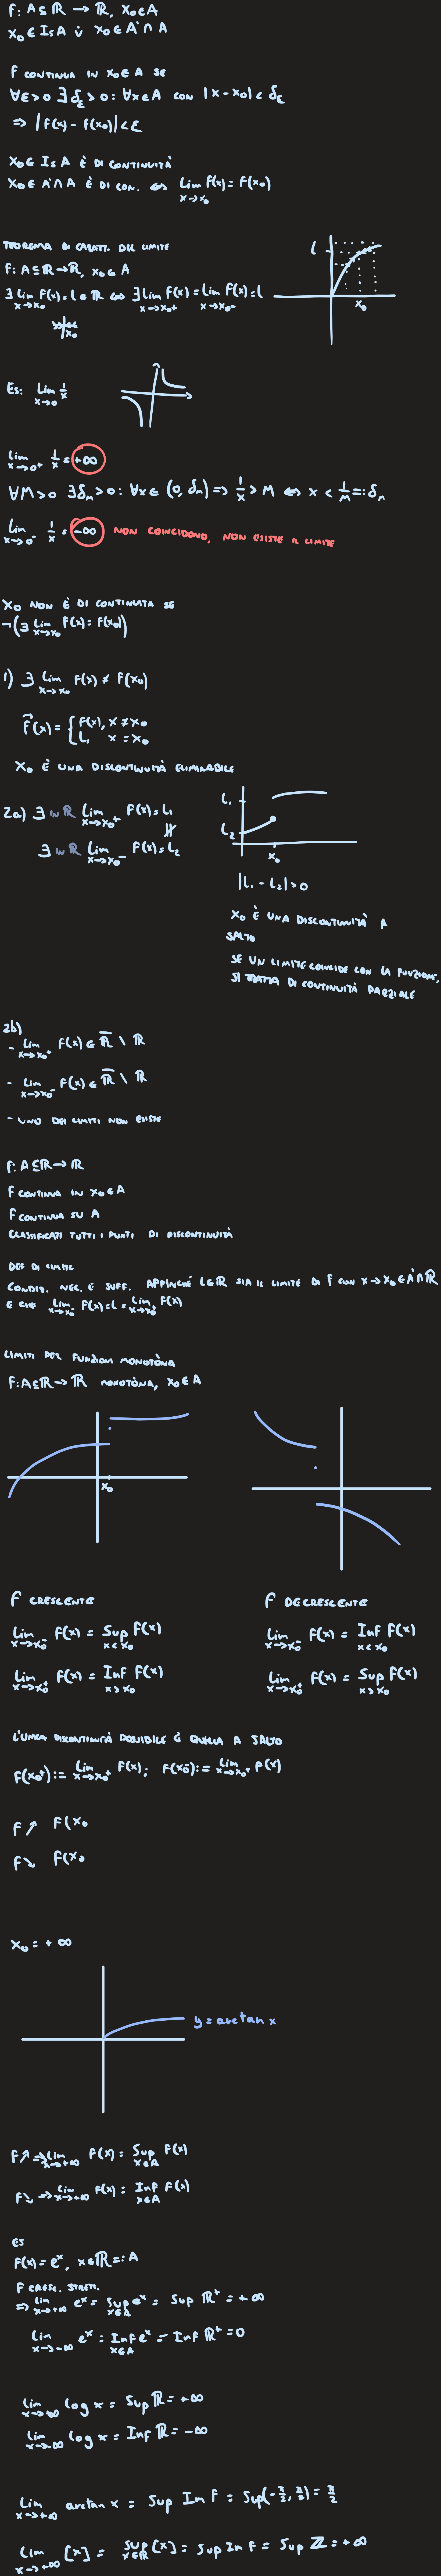 f: A ⊆ ℝ → ℝ, x₀ ∈ A
x₀ ∈ Is A v̇ x₀ ∈ A' ∩ A
f CONTINUA IN x₀ ∈ A SE
∀ε > 0 ∃ δ_ε > 0 : ∀x ∈ A CON |x - x₀| < δ_ε
=> |f(x) - f(x₀)| < ε
x₀ ∈ Is A È DI CONTINUITÀ
x₀ ∈ A' ∩ A È DI CON. <=> lim_{x→x₀} f(x) = f(x₀)
TEOREMA DI CARATT. DEL LIMITE
f: A ⊆ ℝ → ℝ, x₀ ∈ A
∃ lim_{x→x₀} f(x) = l ∈ ℝ <=> ∃ lim_{x→x₀+} f(x) = lim_{x→x₀-} f(x) = l
x₀
l
x₀
Es: lim_{x→0} 1/x
lim_{x→0+} 1/x = +∞
∀M > 0 ∃ δ_M > 0 : ∀x ∈ (0, δ_M) => 1/x > M <=> x < 1/M =: δ_M
lim_{x→0-} 1/x = -∞ NON COINCIDONO, NON ESISTE IL LIMITE
x₀ NON È DI CONTINUITÀ SE
¬(∃ lim_{x→x₀} f(x) = f(x₀))
1) ∃ lim_{x→x₀} f(x) ≠ f(x₀)
f̃(x) = { f(x), x ≠ x₀
L, x = x₀
x₀ È UNA DISCONTINUITÀ ELIMINABILE
2a) ∃ IN ℝ lim_{x→x₀+} f(x) = L₁
∦
∃ IN ℝ lim_{x→x₀-} f(x) = L₂
L₁
L₂
x₀
|L₁ - L₂| > 0
x₀ È UNA DISCONTINUITÀ A
SALTO
SE UN LIMITE COINCIDE CON LA FUNZIONE,
SI TRATTA DI CONTINUITÀ PARZIALE
2b)
- lim_{x→x₀+} f(x) ∈ ℝ̅ \ ℝ
- lim_{x→x₀-} f(x) ∈ ℝ̅ \ ℝ
- UNO DEI LIMITI NON ESISTE
f: A ⊆ ℝ → ℝ
f CONTINUA IN x₀ ∈ A
f CONTINUA SU A
CLASSIFICATI TUTTI I PUNTI DI DISCONTINUITÀ
DEF DI LIMITE
CONDIZ. NEC. E SUFF. AFFINCHÉ L ∈ ℝ SIA IL LIMITE DI f CON x → x₀ ∈ A' ∩ ℝ
È CHE lim_{x→x₀-} f(x) = L = lim_{x→x₀+} f(x)
LIMITI PER FUNZIONI MONOTÒNA
f: A ⊆ ℝ → ℝ MONOTÒNA, x₀ ∈ A
x₀
f CRESCENTE
lim_{x→x₀-} f(x) = Sup_{x<x₀} f(x)
lim_{x→x₀+} f(x) = Inf_{x>x₀} f(x)
f DECRESCENTE
lim_{x→x₀-} f(x) = Inf_{x<x₀} f(x)
lim_{x→x₀+} f(x) = Sup_{x>x₀} f(x)
L'UNICA DISCONTINUITÀ POSSIBILE È QUELLA A SALTO
f(x₀+) := lim_{x→x₀+} f(x); f(x₀-) := lim_{x→x₀+} f(x)
f ↗ f(x₀
f ↘ f(x₀
x₀ = +∞
y = arctan x
f ↗ => lim_{x→+∞} f(x) = Sup_{x∈A} f(x)
f ↘ => lim_{x→+∞} f(x) = Inf_{x∈A} f(x)
ES
f(x) = eˣ, x ∈ ℝ =: A
f CRESC. STRETT.
=> lim_{x→+∞} eˣ = Sup_{x∈A} eˣ = Sup ℝ⁺ = +∞
lim_{x→-∞} eˣ = Inf_{x∈A} eˣ = Inf ℝ⁺ = 0
lim_{x→+∞} log x = Sup ℝ = +∞
lim_{x→-∞} log x = Inf ℝ = -∞
lim_{x→+∞} arctan x = Sup Im f = Sup(-π/2, π/2) = π/2
lim_{x→+∞} [x] = Sup_{x∈ℝ} [x] = Sup Im f = Sup ℤ = +∞